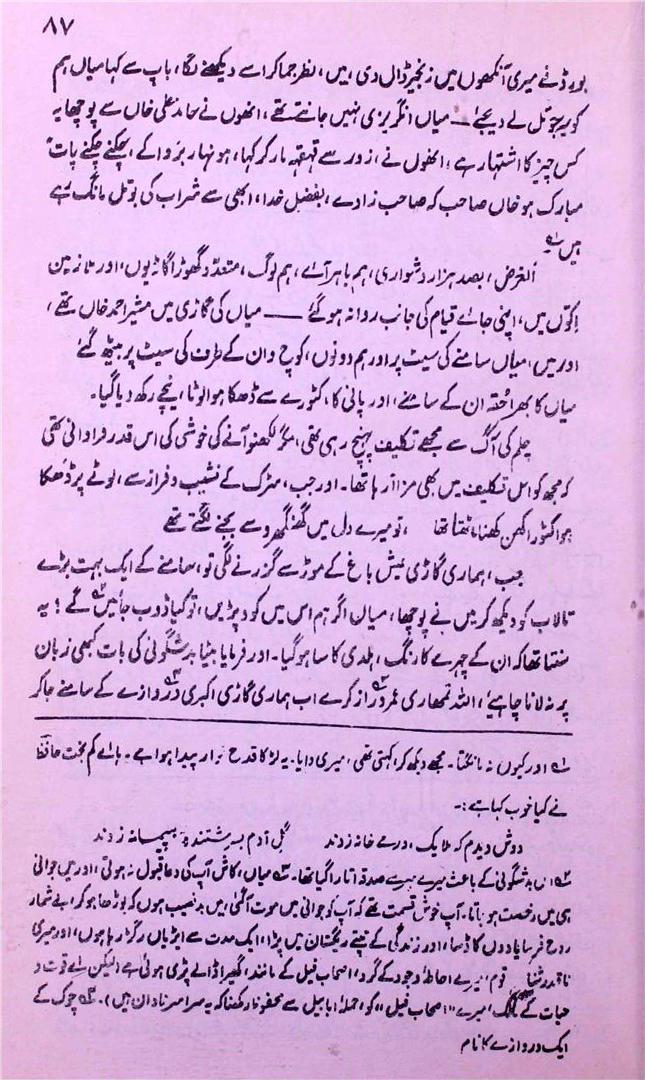 ۸۷
بورڈ نے میری آنکھوں میں زنجیر ڈال دی، میں، نظر جما کر اسے دیکھنے لگا، باپ سے کہا میاں ہم
کو یہ بوتل لے دیجئے — میاں انگریزی نہیں جانتے تھے، انھوں نے حامد علی خاں سے پوچھا یہ
کس چیز کا اشتہار ہے؟ انھوں نے، زور سے قہقہہ مار کر کہا، ہونہار بروا کے، چکنے چکنے پات"
مبارک ہو خاں صاحب کہ صاحب زادے، بفضل خدا، ابھی سے شراب کی بوتل مانگ رہے
ہیں ۱؎
الغرض، بصد ہزار دشواری، ہم باہر آئے، ہم لوگ، متعدد گھوڑا گاڑیوں، اور نازنین
اِکّوں میں، اپنی جائے قیام کی جانب روانہ ہو گئے — میاں کی گاڑی میں مشیر احمد خاں تھے،
اور میں، میاں سامنے کی سیٹ پر اور ہم دونوں، کوچ وان کے طرف کی سیٹ پر بیٹھ گئے
میاں کا بھرا حُقّہ ان کے سامنے، اور پانی کا، کٹورے سے ڈھکا ہوا لوٹا، نیچے رکھ دیا گیا۔
چلم کی آگ سے مجھے تکلیف پہنچ رہی تھی، مگر لکھنؤ آنے کی خوشی کی اس قدر فراوانی تھی
کہ مجھ کو اس تکلیف میں بھی مزا آرہا تھا۔ اور جب، سڑک کے نشیب و فراز سے، لوٹے پر ڈھکا
ہوا کٹورا کھن کھنا اٹھتا تھا، تو میرے دل میں گھنگھرو سے بجنے لگتے تھے
جب، ہماری گاڑی عیش باغ کے موڑ سے گزرنے لگی تو، سامنے کے ایک بہت بڑے
تالاب کو دیکھ کر میں نے پوچھا، میاں اگر ہم اس میں کود پڑیں، تو کیا ڈوب جائیں گے؟ یہ
سننا تھا کہ ان کے چہرے کا رنگ، ہلدی کا سا ہو گیا۔ اور فرمایا بیٹا بدشگونی کی بات کبھی زبان
پر نہ لانا چاہیے، اللہ تمھاری عمر دراز کرے اب ہماری گاڑی اکبری دروازے کے سامنے جا کر
۱؎ اور کیوں نہ مانگتا۔ مجھے دیکھ کر، کہتی تھی، میری دایا۔ یہ لڑکا قدح خوار پیدا ہوا ہے۔ ہائے کم بخت حافظ
نے کیا خوب کہا ہے :۔
دوش دیدم کہ ملایک، درے خانہ زدند گلِ آدم بسرشتند و بہ پیمانہ زدند
۲؎ اس بدشگونی کے باعث میرے سر سے صدقہ اتارا گیا تھا۔ ۳؎ میاں، کاش آپ کی دعا قبول نہ ہوتی، اور میں جوانی
ہی میں رخصت ہو جاتا۔ آپ خوش قسمت تھے کہ آپ کو جوانی میں موت آگئی، میں بدنصیب ہوں کہ بوڑھا ہو کر، اپنے شمار
روح فرسا یادوں کا ڈسا، اور زندگی کے تپتے ریگستان میں پڑا، ایک مدت سے ایڑیاں رگڑ رہا ہوں، اور میری
ناقدر شناس قوم، میرے احاطۂ وجود کے گرد، اصحاب فیل کے مانند، گھیرا ڈالے پڑی ہوئی ہے (لیکن اے قوت و
حیات کے مالک، میرے "اصحاب فیل" کو، حملۂ ابابیل سے محفوظ رکھنا کہ یہ سراسر نادان ہیں)۔ ۴؎ چوک کے
ایک دروازے کا نام